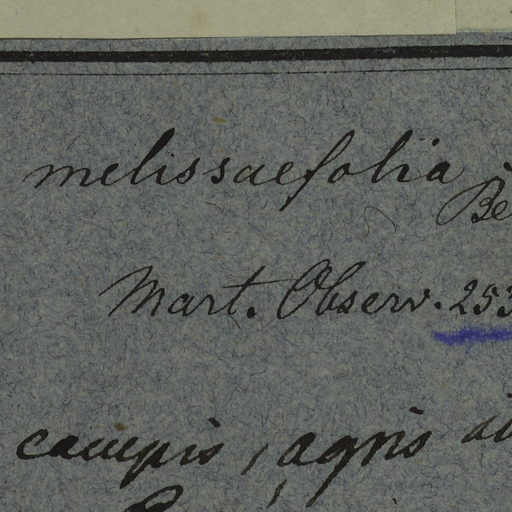 melissaefolia
Be
Mart. Observ. 253
campis, agris